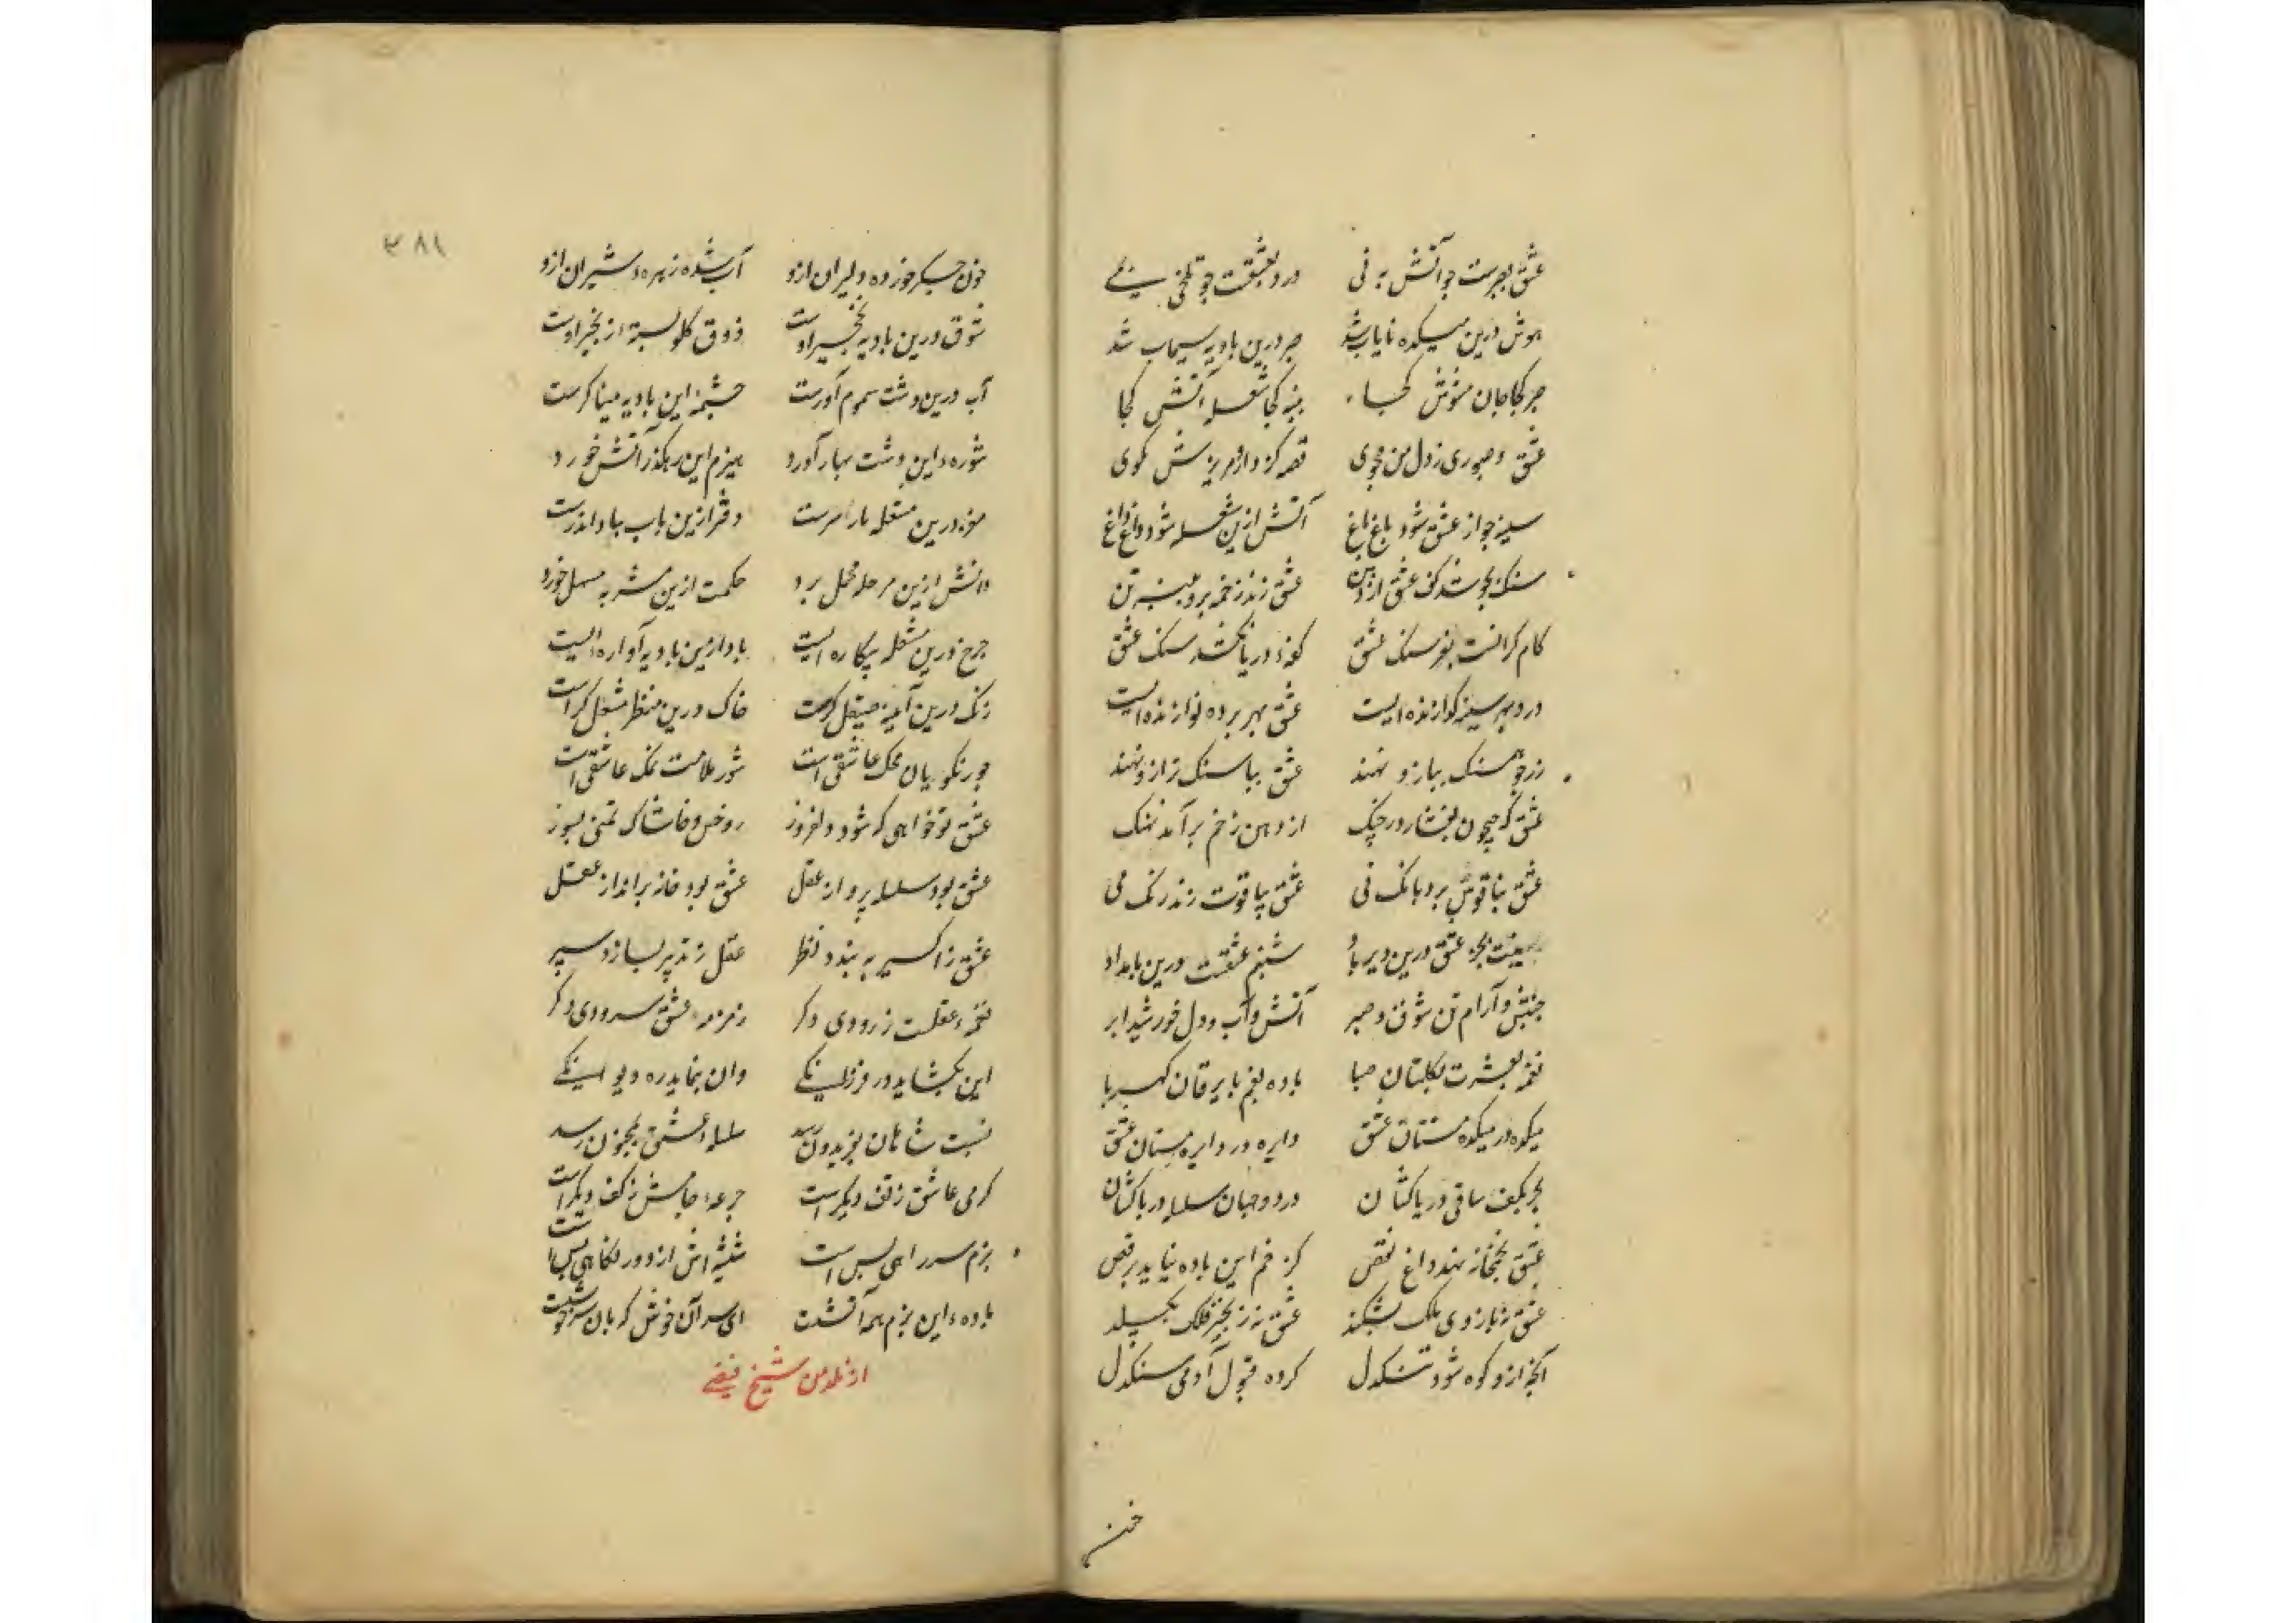 عشق بصبرست چو آتش به نی    درد بعشقت چو تلخی بمی
هوش درین میکده نایاب شد    صبر درین بادیه سیماب شد
صبر کجا جان مشوش کجا    پنبه کجا شعله آتش کجا
عشق و صبوری ز دل من مجوی    قصه کزدارم پریش مکوی
سینه چو از عشق شود باغ باغ    آتش ازین شعله شود داغ داغ
سنک بجوشد زتف عشق از    عشق زند زخمه برو بیزتن
کام کرانست بفرسنک عشق    کوه و دریا نکشد سنک عشق
درد بهر سینه کوارنده ایست    عشق بهر پرده نوازنده ایست
زر چو همسنک ببازو نهند    عشق بیا سنک ترازو نهند
عشق که بیچون بفشارد چنک    از دهن زخم برآمد نهنک
عشق بناقوس برد بانک نی    عشق بیاقوت زند رنک می
عشق درین دیر    شبنم عشقت درین بامداد
جنبش و آرام تن شوق و صبر    آتش و آب و دل خورشید ابر
نغمه بعشرت بکلستان صبا    باده بغم با یرقان کهربا
میکده در میکده مستان عشق    دایره در دایره مستان عشق
بحر بکف ساقی دریاکشان    در دو جهان سلسله دریاکشان
عشق بخمخانه نهد داغ نقص    کز خم این باده نیاید برقص
عشق نه بازوی ملک بشکند    عشق نه زنجیر فلک بکسلد
آنچه ازو کوه شود تنکدل    کرده قبول آدمی سنکدل
خون
۳۸۱
خون جکر خورده دلیران ازو    آب شده زهرهٔ شیران ازو
شوق درین بادیه نخجیر اوست    ذوق کلو بسته زنجیر اوست
آب درین دشت سموم آورست    چشمهٔ این بادیه مینا کرست
شورهٔ این دشت بهار آورد    هیزم این رهکذر آتش خورد
درین مشغله    دفتر ازین باب بباد اندرست
دانش ازین مرحله محمل برد    حکمت ازین مشربه مسهل خورد
چرخ درین مشغله بیکاره ایست    باد ازین بادیه آواره ایست
زنک درین آینه صیقل کرست    خاک درین منظر مشعل کراست
جور نکویان محک عاشقی است    شور ملامت نمک عاشقی است
عشق تو خواهی که شود دلفروز    رو خس و خاشاک تمنی بسوز
عشق بود سلسله پرواز عقل    عشق بود خانه برانداز عقل
عشق ز اکسیر به بندد نظر    عقل ز تدبیر بسازد سپر
نغمهٔ عقلست ز رودی دکر    زمزمهٔ عشق سرودی دکر
این بکشاید در فرزانکی    وان بنماید ره دیوانکی
نسبت شاهان بفریدون رسد    سلسلهٔ عشق بمجنون رسد
کرمی عاشق ز تف دیکر است    جرعهٔ جامش ز کف دیکر است
بزم سر راهی بس است    شیشه اش از دور نکاهی بس است
بادهٔ این بزم همه آتشست    ای سر آن خوش که بان سرخوشست
از نلدمن شیخ فیضی